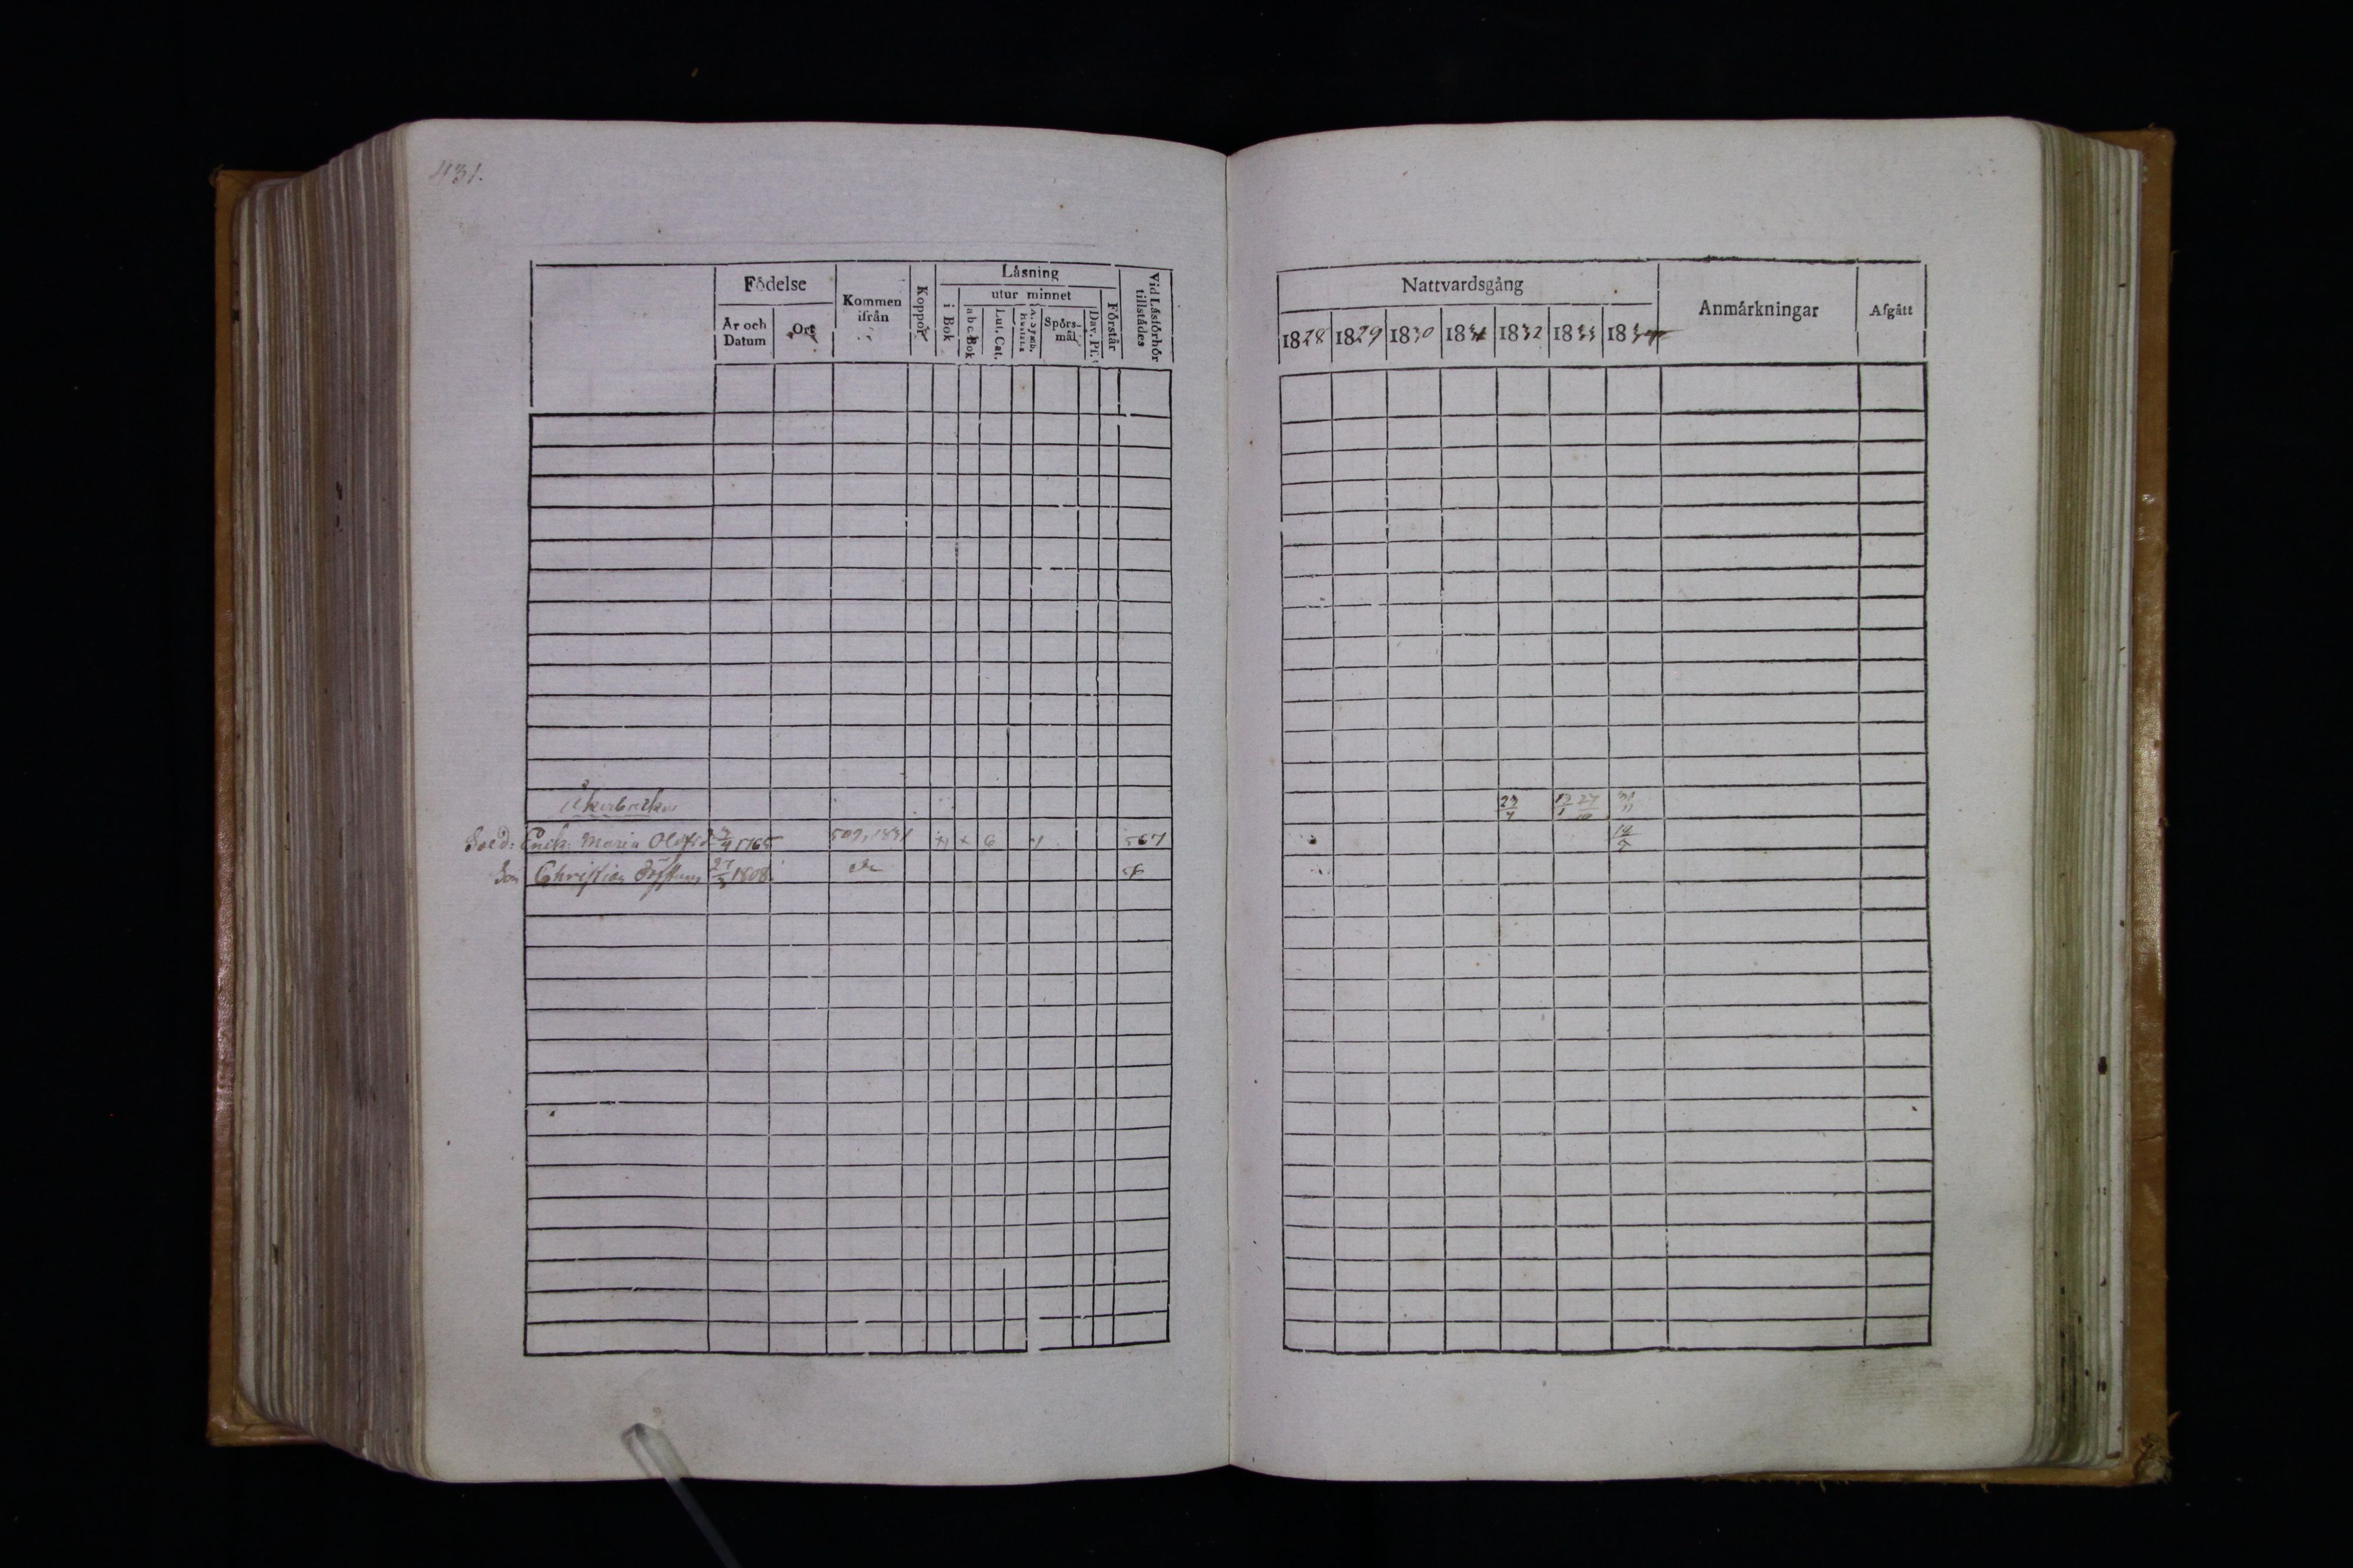 431.
Födelse
År och Datum
Ort
Kommen ifrån
Koppor
Läsning
i Bok
utur minnet
a b c Bok
Lut. Cat.
A. Symb.
Spörs-mål
Dav. Ps.
Förstår
Vid Läsförhör tillstädes
Sold: Enk: Maria Olofsd 1765 509, 1831 6 567
Son Christian 27/3 1808. do
Nattvardsgång
1828 1829 1830 1831 1832 1833 1834
Anmärkningar
Afgått